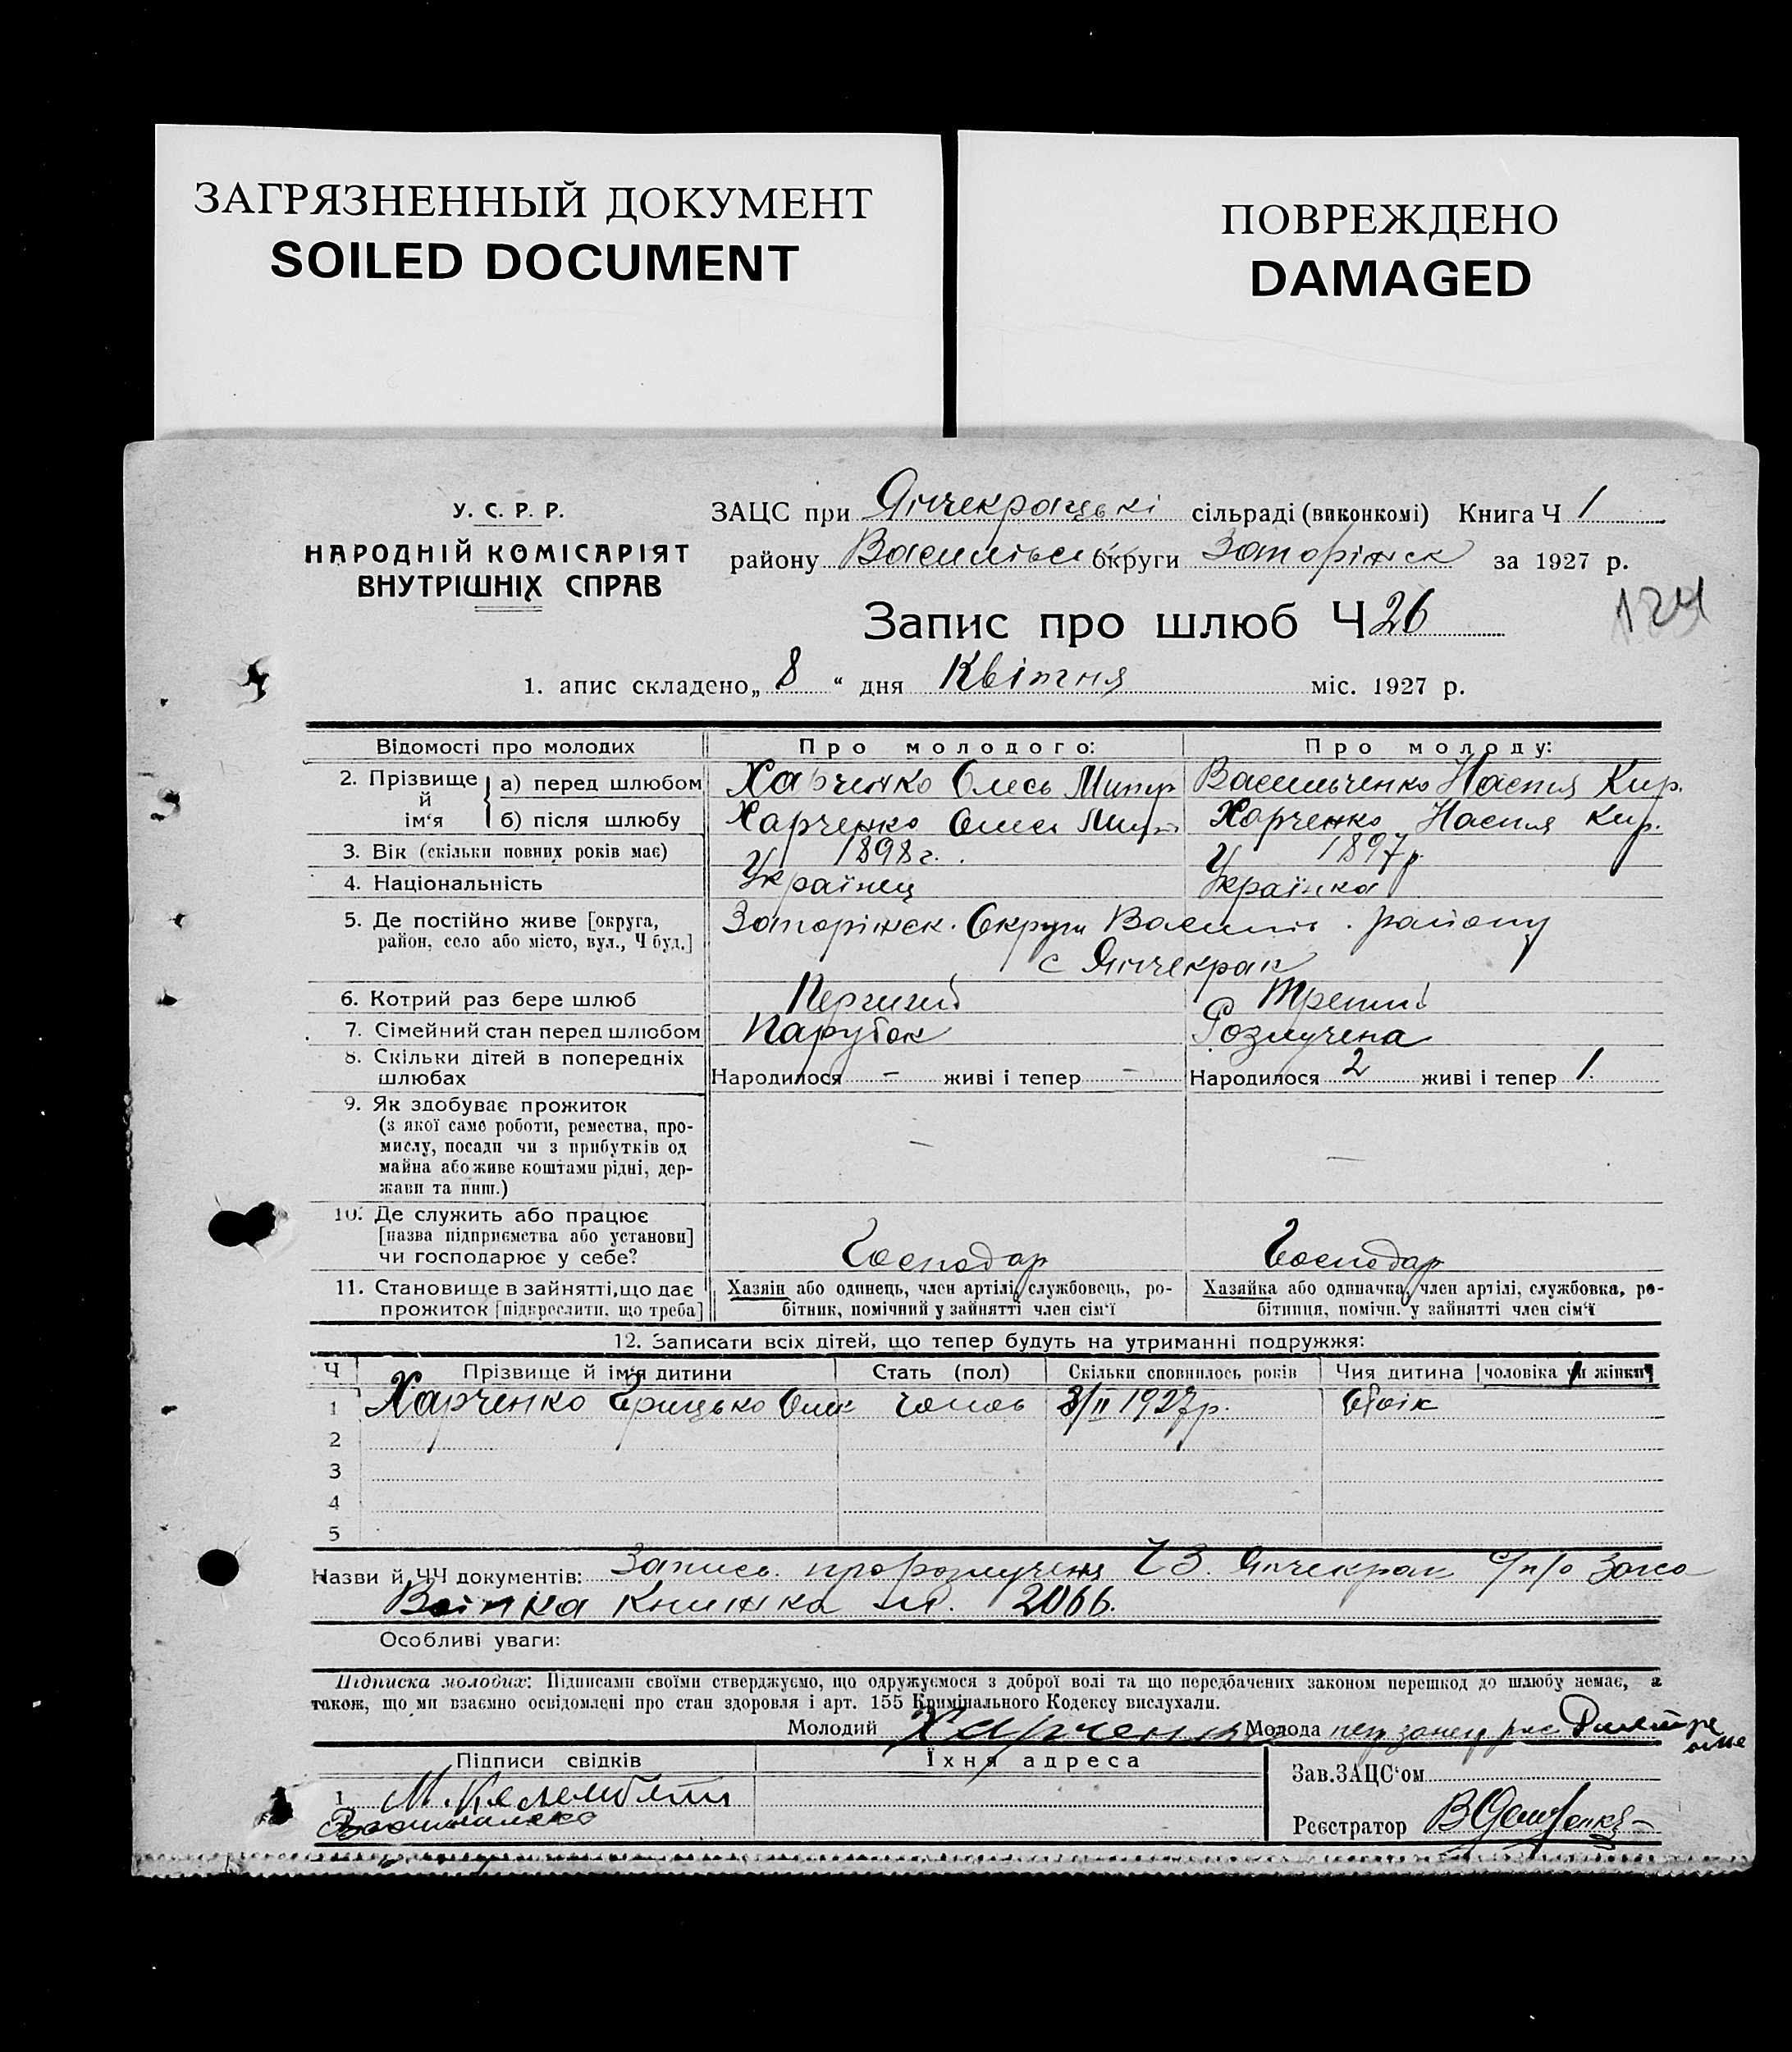 ЗАГРЯЗНЕННЫЙ ДОКУМЕНТ
SOILED DOCUMENT
ПОВРЕЖДЕНО
DAMAGED
У. С. Р. Р.
НАРОДНІЙ КОМІСАРІЯТ
ВНУТРІШНІХ СПРАВ
ЗАЦС при Янчекрацькі сільраді (виконкомі) Книга Ч 1
району Василівськ округи Запоріжск за 1927 р.
Запис про шлюб Ч 26
124
1. апис складено „ 8 “ дня Квітня міс. 1927 р.
Відомості про молодих Про молодого: Про молоду:
2. Прізвище й ім‘я а) перед шлюбом Харченко Олесь Митр Васильченко Настя Кир.
б) після шлюбу Харченко Олесь Митр Харченко Настя Кир.
3. Вік (скільки повних років має) 1898 г. 1897 р.
4. Національність Українец Українка
5. Де постійно живе [округа, Запоріжск. Округи Василів. району
район, село або місто, вул., Ч буд.]
с Янчекрак
6. Котрий раз бере шлюб Перший Третій
7. Сімейний стан перед шлюбом Парубок Розлучена
8. Скільки дітей в попередніх
шлюбах Народилося – живі і тепер – Народилося 2 живі і тепер 1.
9. Як здобуває прожиток
(з якої саме роботи, ремества, про-
мислу, посади чи з прибутків од – –
майна або живе коштами рідні, дер-
жави та инш.)
10. Де служить або працює
[назва підприємства або установи]
чи господарює у себе? Господар Господар
11. Становище в зайнятті, що дає Хазяін або одинець, член артілі, службовець, ро- Хазяйка або одиначка, член артілі, службовка, ро-
прожиток [підкреслити, що треба] бітник, помічний у зайнятті член сім‘ї бітниця, помічн. у зайнятті член сім‘ї
12. Записати всіх дітей, що тепер будуть на утриманні подружжя:
Ч Прізвище й ім‘я дитини Стать (пол) Скільки сповнилось років Чия дитина [чоловіка чи жінки]
1 Харченко Грицько Олек чолов 3/II 1927 р. Обоік
2
3
4
5
Назви й ЧЧ документів: Запись про розлученя Ч 3. Янчекрак с/п/о Загса
Воінка книжка 2066.
Особливі уваги:
Підписка молодих: Підписами своїми стверджуємо, що одружуємося з доброї волі та що передбачених законом перешкод до шлюбу немає, а
також, що ми взаємно освідомлені про стан здоровля і арт. 155 Кримінального Кодексу вислухали.
Молодий Харченко Молода
Підписи свідків Їхня адреса
Зав.ЗАЦС‘ом
1 М.
Реєстратор